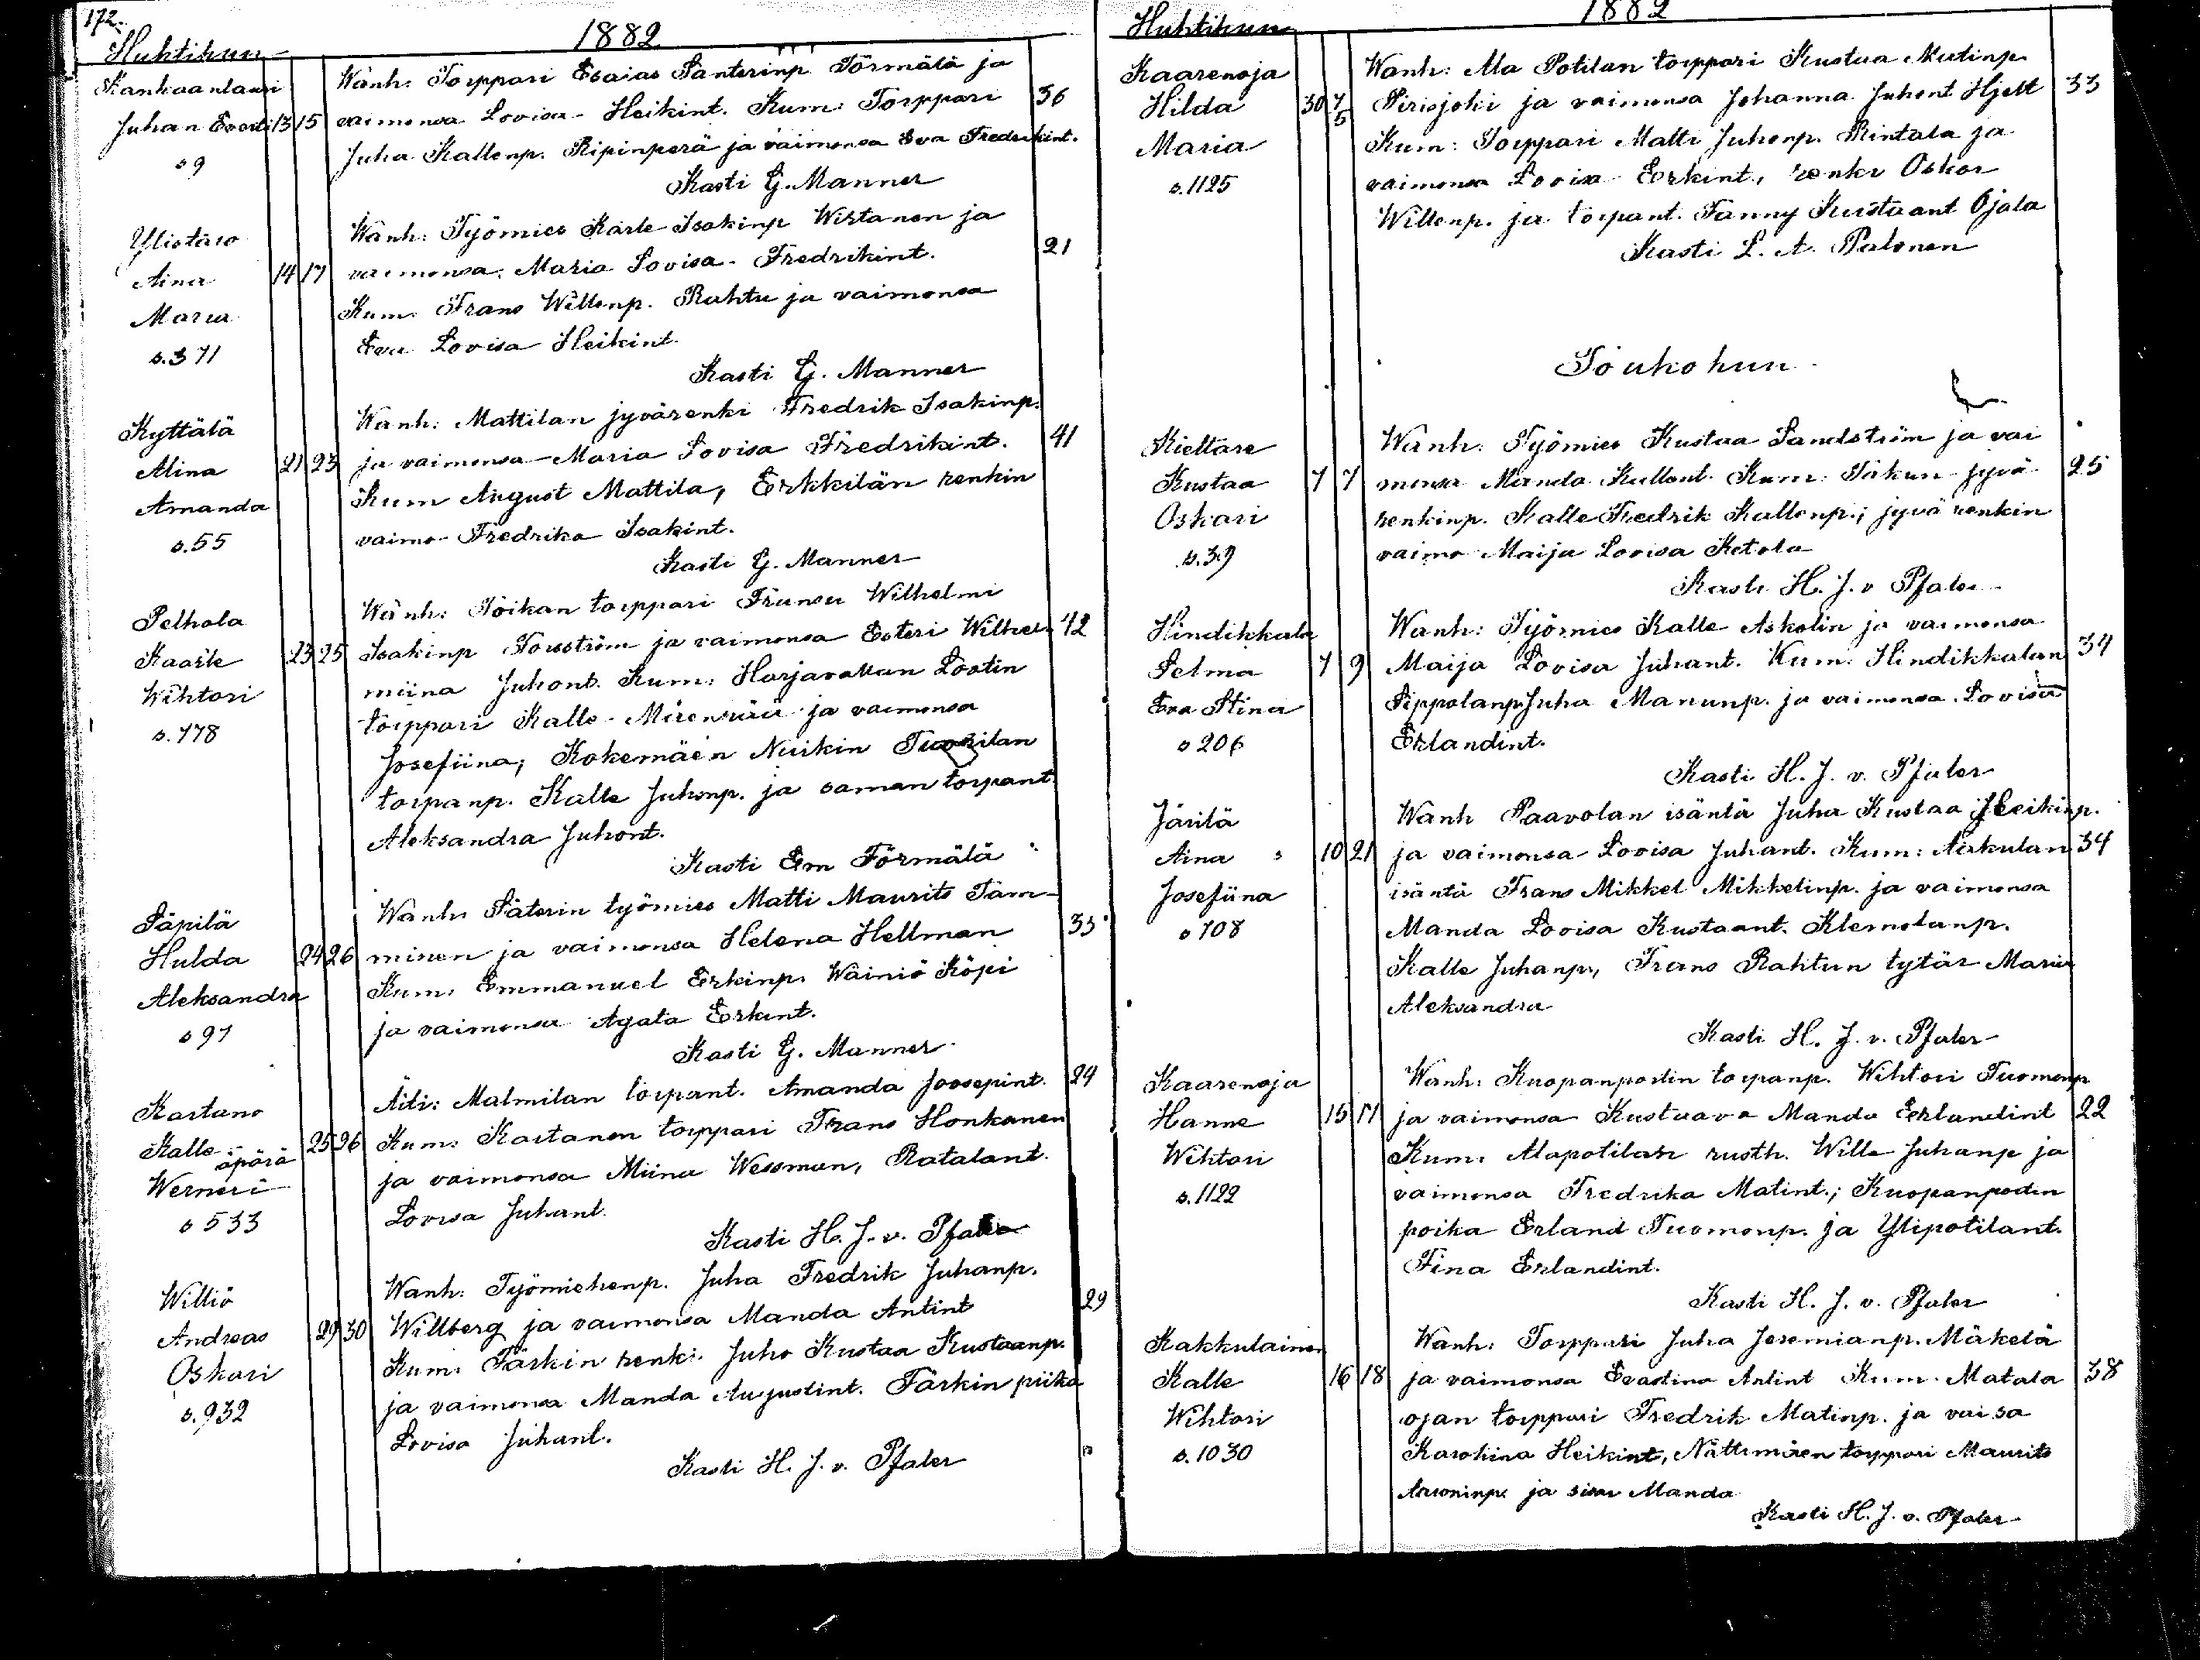 172.
Huhtikun
1882
Kankaanlauri
Juhan Everti 13 15
s 9
Wanh: Torppari Esaias Santerinp Törmälä ja
vaimonsa Lovisa Heikint. Kum: Torppari 36
Juha Kallenp. Ripinperä ja vaimonsa Eva Fredrikint.
Kasti G. Manner
Ylistaro
Aina 14 17
Maria
s. 371
Wanh: Työmies Karle Isakinp Wirtanen ja
vaimonsa Maria Lovisa Fredrikint. 21
Kum: Frans Willenp. Rahtu ja vaimonsa
Eva Lovisa Heikint.
Kasti G. Manner
Kyttälä
Alina 21 23
Amanda
s. 55
Wanh: Mattilan jyvärenki Fredrik Isakinp.
ja vaimonsa Maria Lovisa Fredrikint. 41
Kum August Mattila, Erkkilän renkin
vaimo Fredrika Isakint.
Kasti G. Manner
Pelhola
Kaarle 23 25
Wihtori
s. 778
Wanh: Töikan torppari Fransu Wilhelmi
Isakinp Forsström ja vaimonsa Esteri Wilhel- 42
miina Juhont. Kum: Harjavallan Lootin
torppari Kalle ja vaimonsa
Josefiina; Kokemäen Tuorilan
torpanp. Kalle Juhonp. ja saman torpant.
Aleksandra Juhont.
Kasti Em Törmälä
Säpilä
Hulda 24 26
Aleksandra
s 97
Wanh: Säterin työmies Matti Maurits Tam-
minen ja vaimonsa Helena Hellman 35
Kum: Emmanuel Erkinp. Wäiniö Köpi
ja vaimonsa Agata Erkint.
Kasti G. Manner
Kartano
Kalle äpärä 25 26
Werneri
s 533
Äiti: Malmilan torpant. Amanda Joosepint. 24
Kum: Kartanon torppari Frans Honkanen
ja vaimonsa Miina Wessman, Ratalant.
Lovisa Juhant.
Kasti H. J. v. Pfaler
Williö
Andreas 29 30
Oskari
s. 932
Wanh: Työmiehenp. Juha Fredrik Juhanp.
Willberg ja vaimonsa Manda Antint 29
Kum: Tärkin renki Juho Kustaa Kustaanp.
ja vaimonsa Manda Augustint. Tärkin piika
Lovisa Juhant.
Kasti H. J. v. Pfaler
Huhtikun
1882
Kaarenoja
Hilda 30 7/5
Maria
s. 1125
Wanh: Ala Potilan torppari Kustaa Matinp.
Piriojoki ja vaimonsa Johanna Juhont Hjelt 33
Kum: Torppari Matti Juhonp. Rintala ja
vaimonsa Lovisa Erkint., renki Oskar
Willenp. ja torpant. Fanny Kustaant Ojala
Kasti L. A. Palonen
Toukokun
Kiettare
Kustaa 7 7
Oskari
s. 39
Wanh: Työmies Kustaa Sandström ja vai
monsa Manda Kallent. Kum: jyvä- 25
renkinp. Kalle Fredrik Kallenp.; jyvä renkin
vaimo Maija Lovisa Ketola
Kasti H. J. v Pfaler
Hindikkala
Selma 7 9
Eva Stina
s 206
Wanh: Työmies Kalle Askolin ja vaimonsa
Maija Lovisa Juhant. Kum: Hindikkalan 34
Sippolanp Juha Manunp. ja vaimonsa Lovisa
Erlandint.
Kasti H. J. v. Pfaler
Järilä
Aina 10 21
Josefiina
s 108
Wanh Paavolan isäntä Juha Kustaa Heikinp.
ja vaimonsa Lovisa Juhant. Kum: Airkulan 34
isäntä Frans Mikkel Mikkelinp. ja vaimonsa
Manda Lovisa Kustaant. Klemolanp.
Kalle Juhanp., Frans Rahtun tytär Maria
Aleksandra
Kasti H. J. v. Pfaler
Kaarenoja
Hanne 15 17
Wihtori
s. 1122
Wanh: Kuopanpostin torpanp. Wihtori Tuomonp
ja vaimonsa Kustaava Manda Erlandint 22
Kum: Alapotilan rusth. Wille Juhanp ja
vaimonsa Fredrika Matint.; Kuopanpostin
poika Erland Tuomonp. ja Ylipotilant.
Fina Erlandint.
Kasti H. J. v. Pfaler
Kakkulainen
Kalle 16 18
Wihtori
s. 1030
Wanh: Torppari Juha Jeremianp. Mäkelä
ja vaimonsa Evastina Antint Kum. Matala 38
ojan torppari Fredrik Matinp. ja vai.sa
Karoliina Heikint, torppari Maurits
ja Manda
Kasti H. J. v. Pfaler